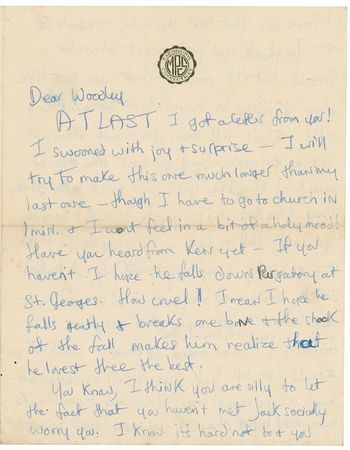 MPS
Dear Woodley
AT LAST I got a letter from you!
I swooned with joy & surprise – I will
try to make this one much longer than my
last one – though I have to go to church in
1 min. & I wont feel in a bit of a holy mood!
Have you heard from Ken yet – If you
haven't I hope he falls down Purgatory at
St. Georges. How cruel! I mean I hope he
falls gently & breaks one bone & the shock
of the fall makes him realize that
he lovest thee the best.
You know, I think you are silly to let
the fact that you haven't met Jack socially
worry you. I know it's hard not to & you